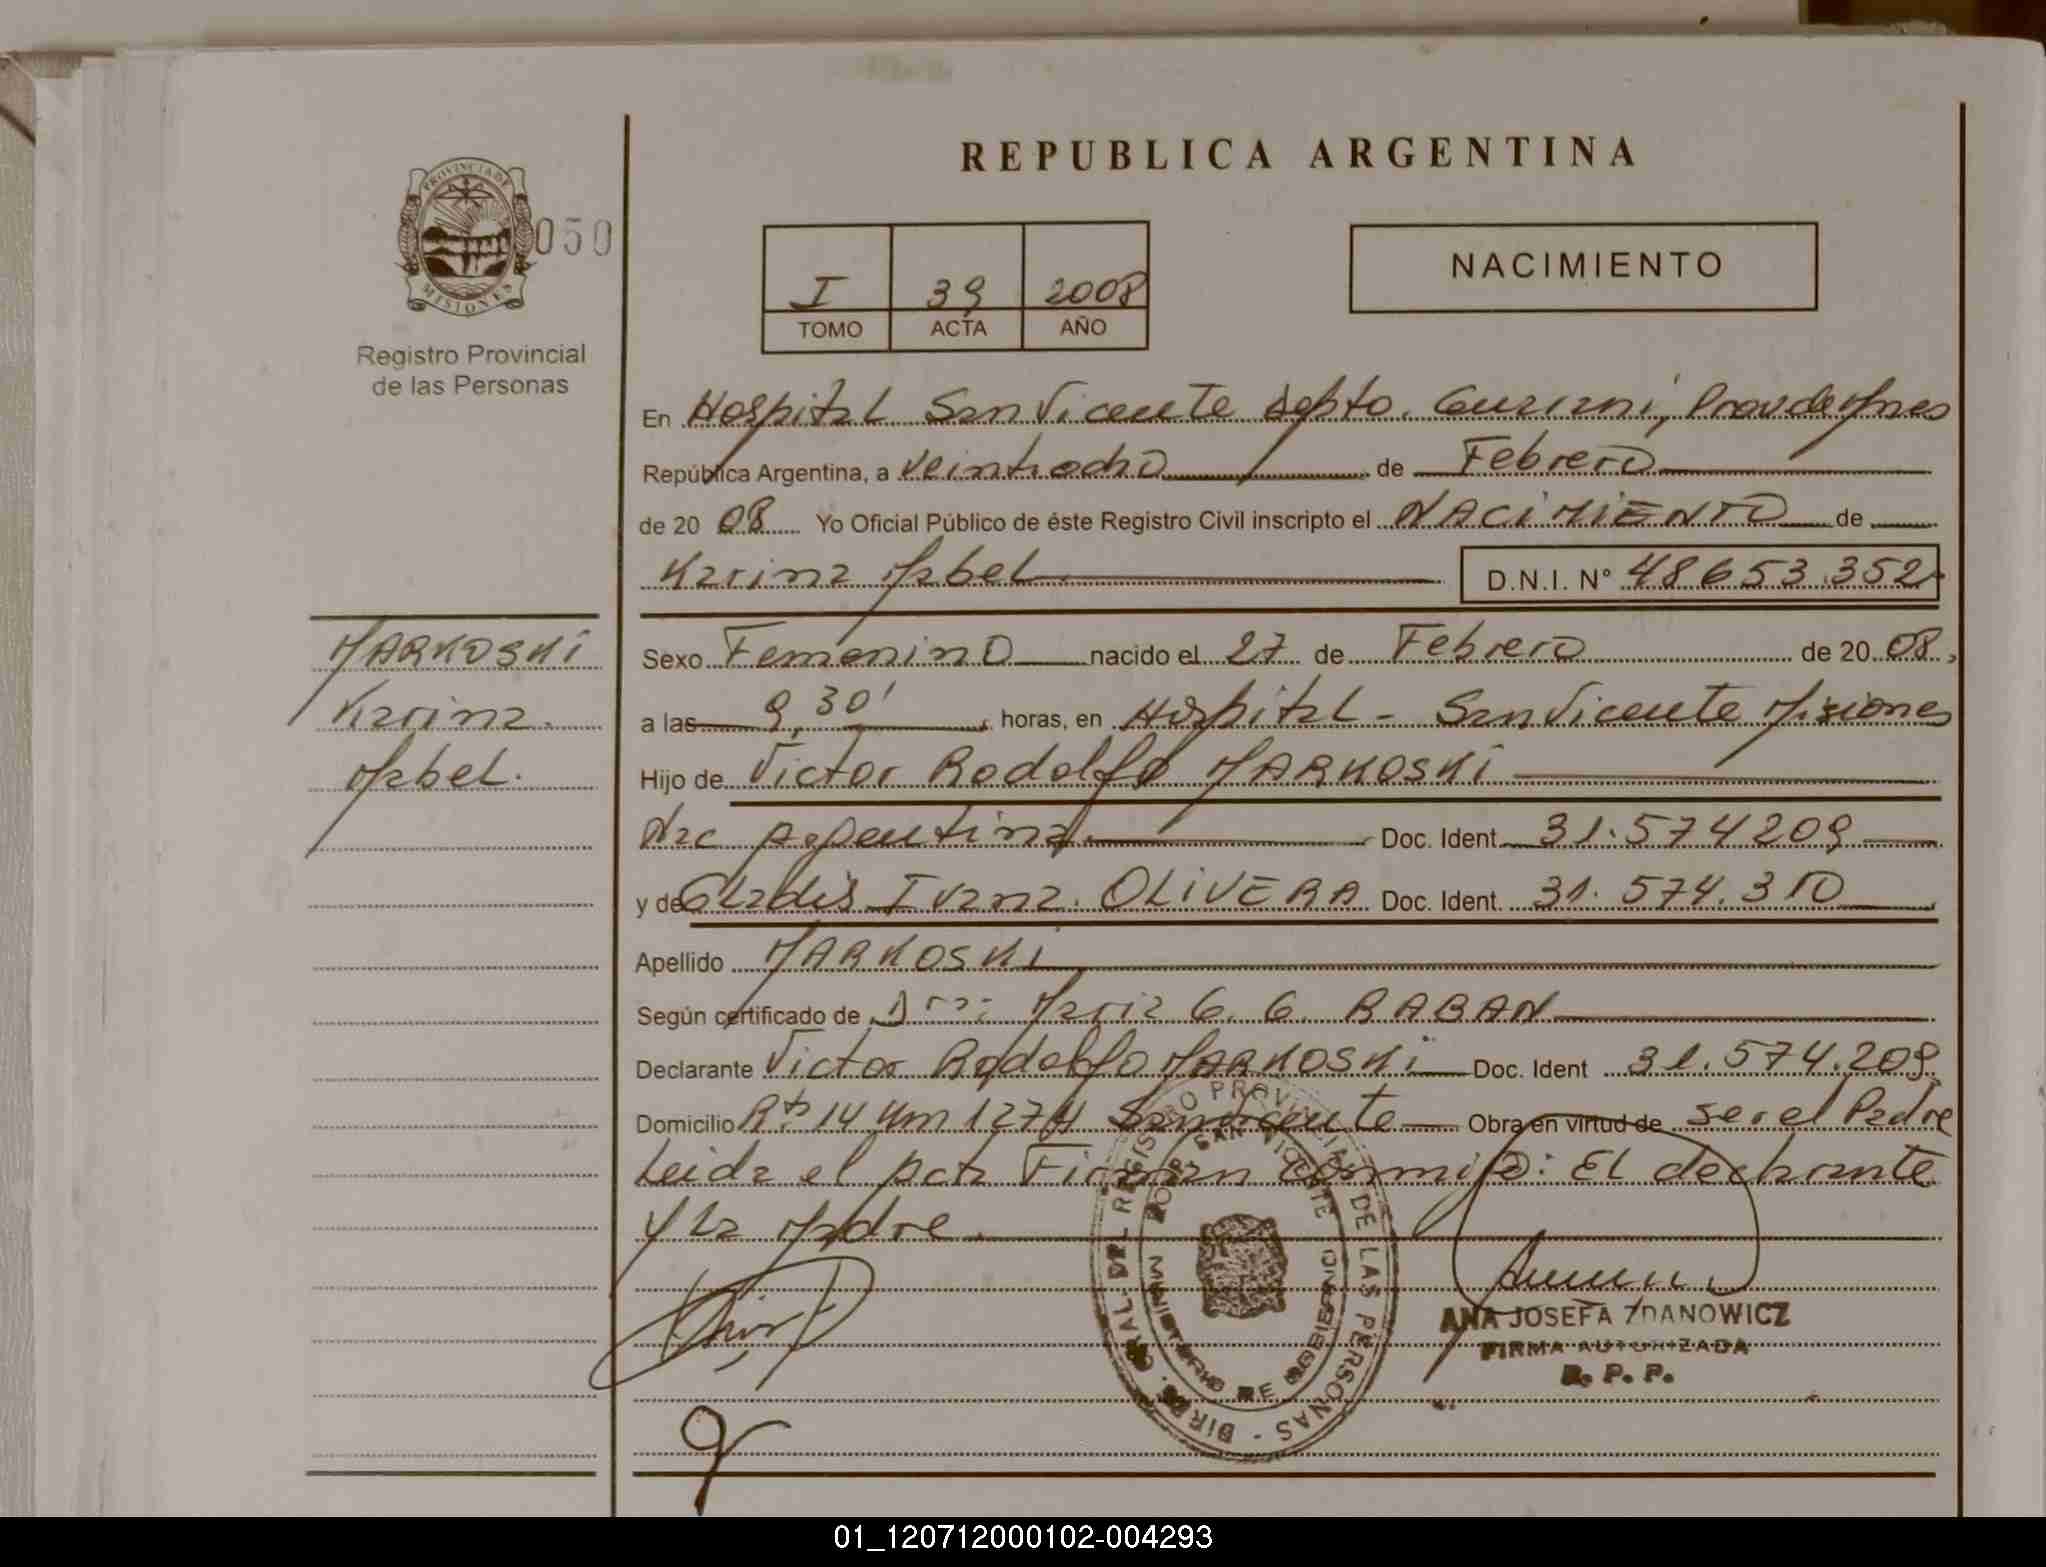 REPUBLICA ARGENTINA
PROVINCIA DE
MISIONES
050
Registro Provincial
de las Personas
I 39 2008
TOMO ACTA AÑO
NACIMIENTO
En Hospital San Vicente depto. Guarani, Prov de Mnes
República Argentina, a veintiocho de Febrero
de 20 08 Yo Oficial Público de éste Registro Civil inscripto el NACIMIENTO de
Karina Mabel D.N.I. N° 48653.352
MARKOSKI
Karina
Mabel.
Sexo Femenino nacido el 27 de Febrero de 20 08,
a las 9,30' horas, en Hospital - San Vicente Misiones
Hijo de Victor Rodolfo MARKOSKI
Nac Argentina Doc. Ident. 31.574209
y de Gladis Ivana OLIVERA Doc. Ident. 31.574.310
Apellido MARKOSKI
Según certificado de Dra: Maria G. G. RABAN
Declarante Victor Rodolfo MARKOSKI Doc. Ident 31.574.209
Domicilio Rta 14 Km 1274 San Vicente Obra en virtud de ser el Padre
Leida el acta Firman conmigo: El declarante
y La Madre.
DIR. GRAL. DEL REGISTRO PROVINCIAL DE LAS PERSONAS
SAN VICENTE
MINISTERIO DE GOBIERNO
ANA JOSEFA ZDANOWICZ
FIRMA AUTORIZADA
R. P. P.
01_120712000102-004293